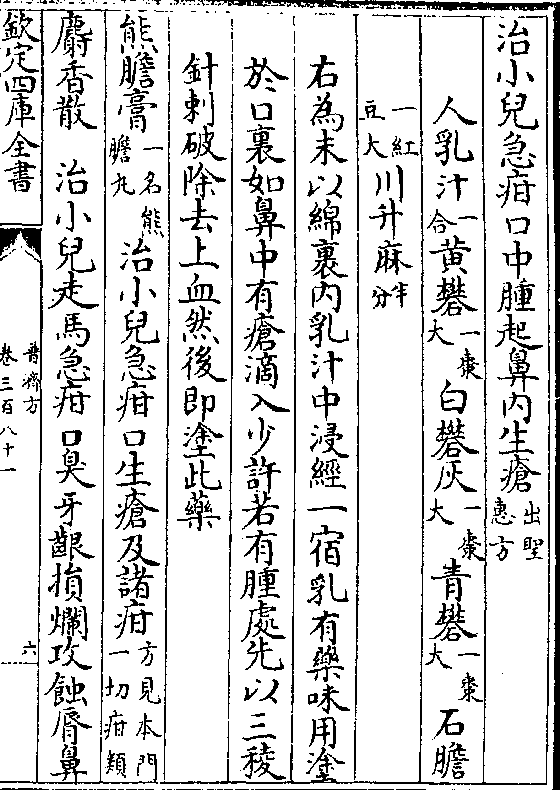 治小兒急疳口中腫起鼻内生瘡出聖惠方
人乳汁一合黄礬一棗大白礬灰一棗大青礬一棗大石膽
一紅豆大川升麻半分
右為末以綿裹内乳汁中浸經一宿乳有藥味用塗
於口裏如鼻中有瘡滴入少許若有腫處先以三稜
針刺破除去上血然後即塗此藥
熊膽膏一名熊膽丸治小兒急疳口生瘡及諸疳方見本門一切疳類
麝香散 治小兒走馬急疳口臭牙齦損爛攻蝕脣鼻
欽定四庫全書
普濟方
卷三百八十一
六